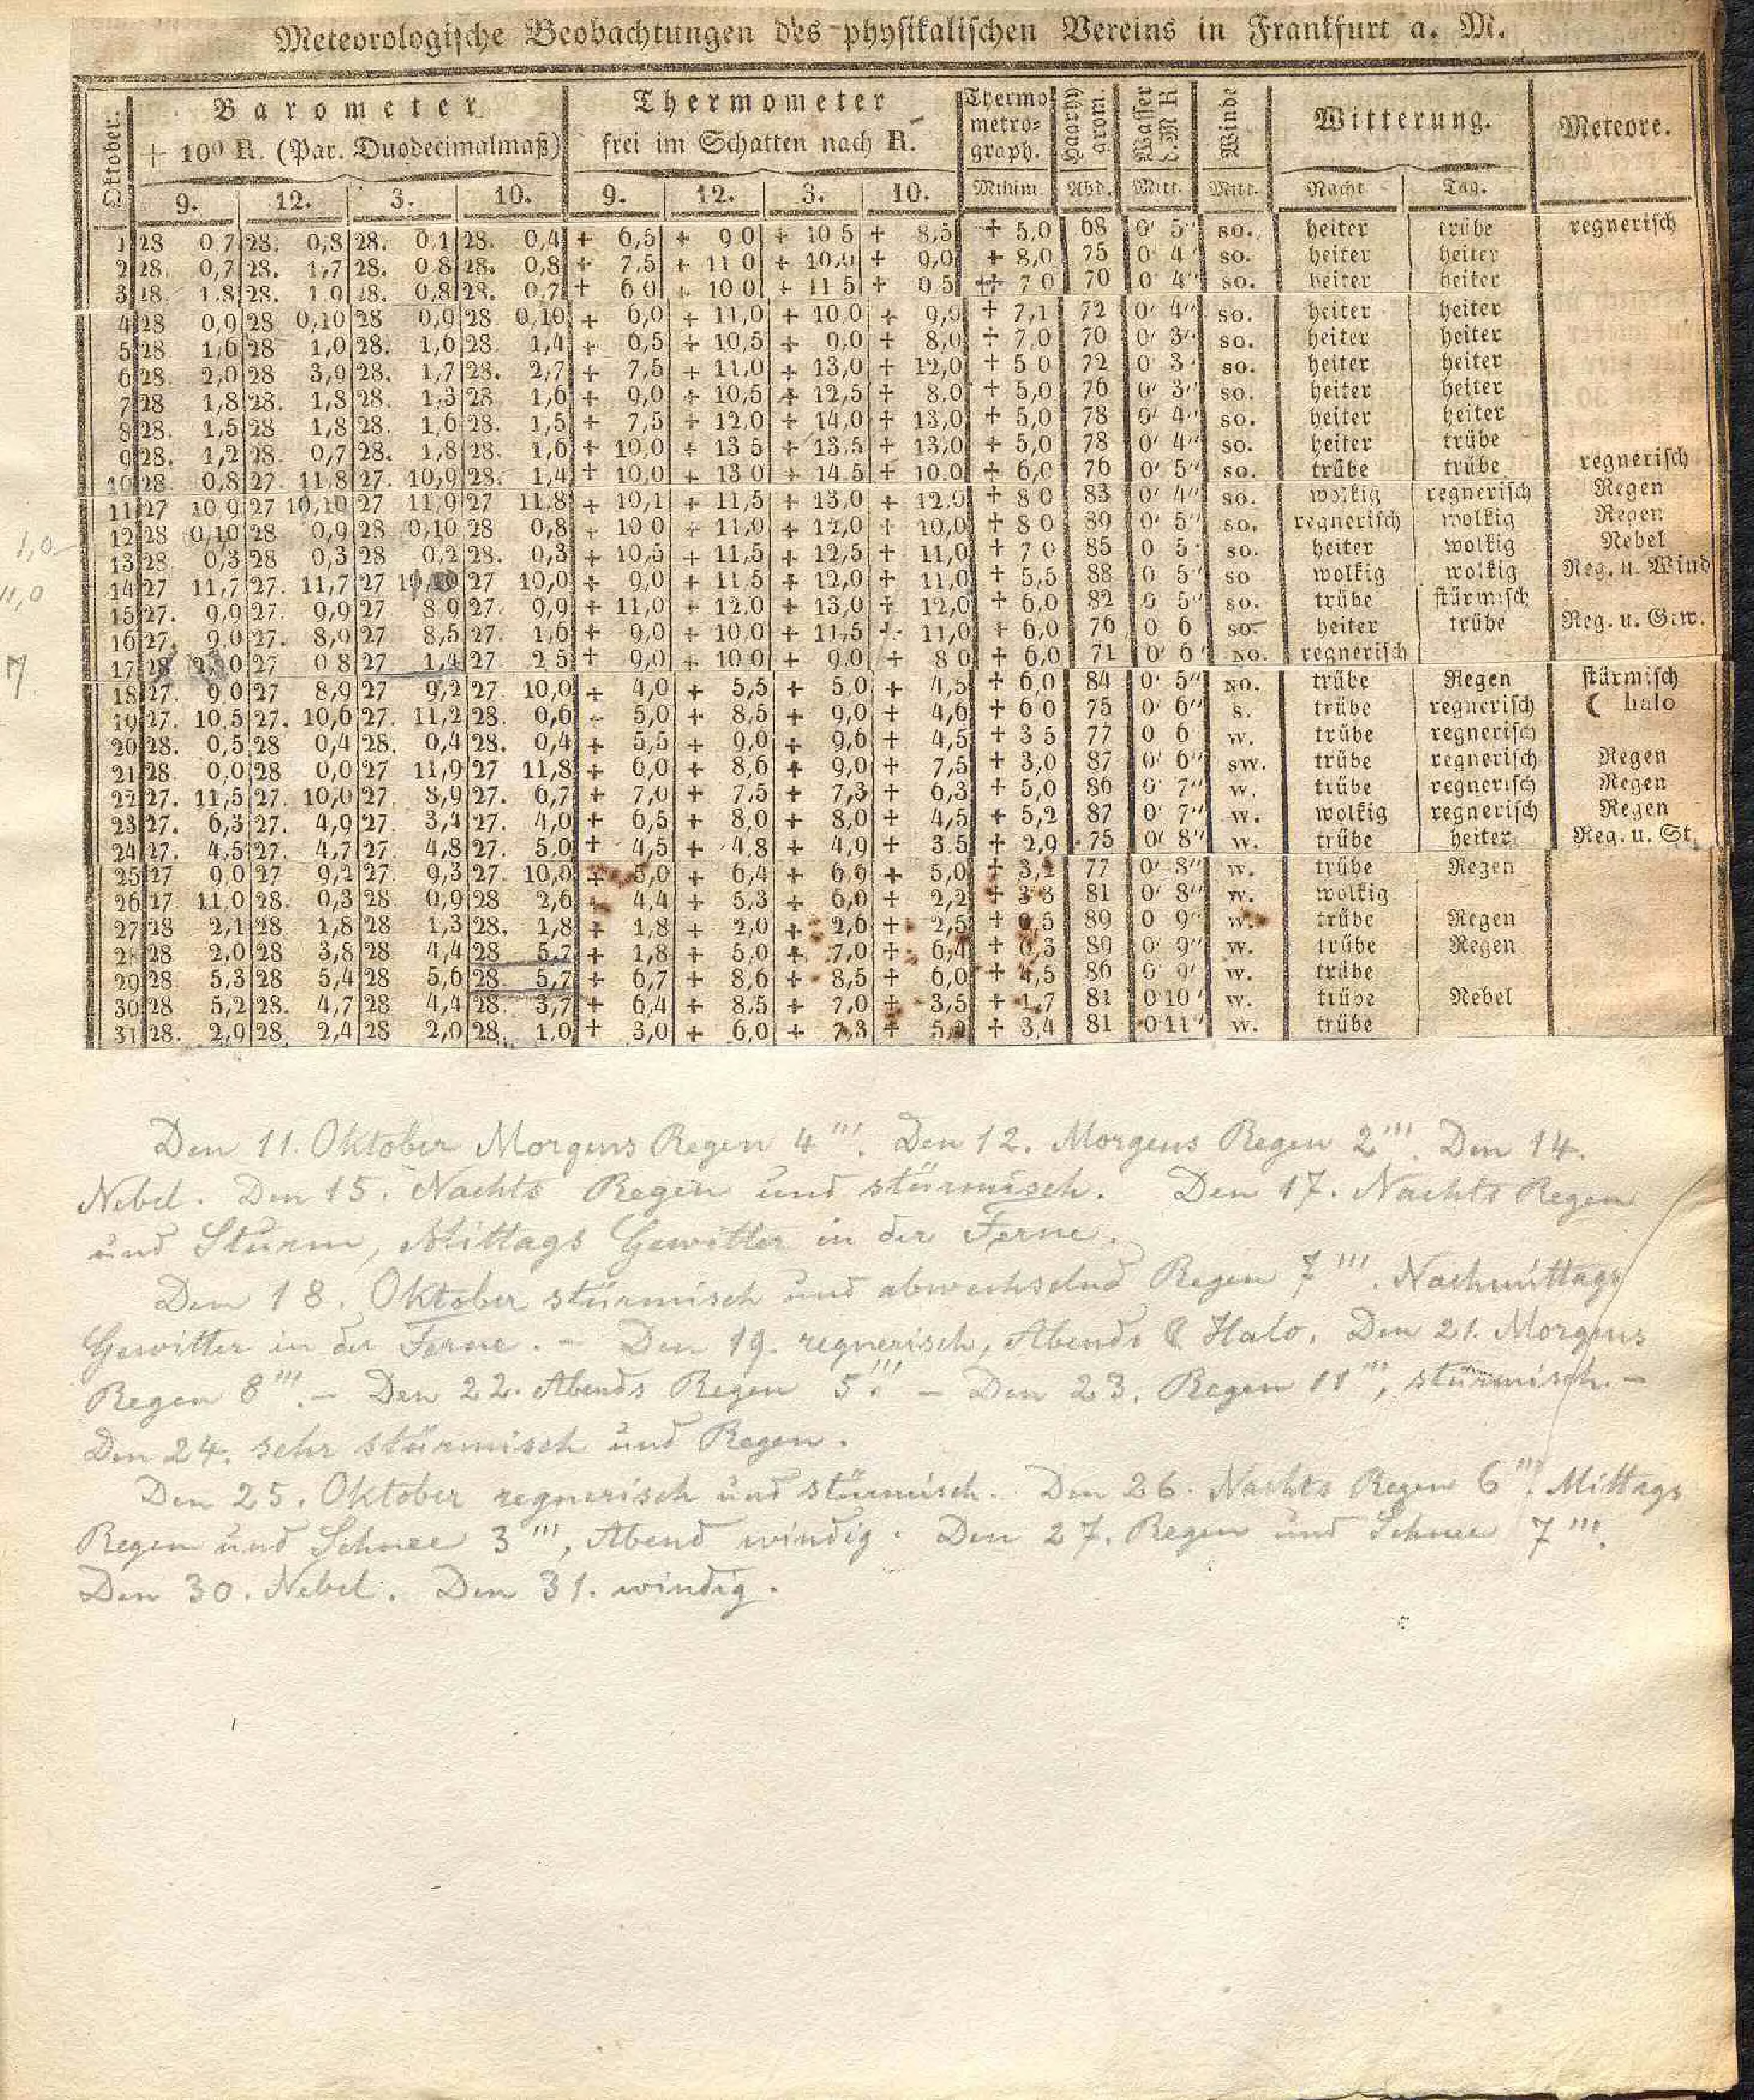 Meteorologische Beobachtungen des physikalischen Vereins in Frankfurt a. M.
Oktober. Barometer + 10⁰ R. (Par. Duodecimalmaß) Thermometer frei im Schatten nach R. Thermometrograph. Haarhygrom. Wasser d. M R Winde Witterung. Meteore.
9. 12. 3. 10. 9. 12. 3. 10. Minim. Abd. Mitt. Mitt. Nacht Tag.
1 28 0,7 28. 0,8 28. 0.1 28. 0,4 + 6,5 + 9 0 + 10 5 + 8,5 + 5,0 68 0' 5" SO. heiter trübe regnerisch
2 28. 0,7 28. 1,7 28. 0.8 28. 0,8 + 7,5 + 11 0 + 10,0 + 9,0 + 8,0 75 0 4" SO. heiter heiter
3 28 1.8 28. 1.0 28. 0,8 28. 0.7 + 6 0 + 10 0 + 11 5 + 0 5 ++ 7 0 70 0 4" SO. heiter heiter
4 28 0,9 28 0,10 28 0,9 28 0,10 + 6,0 + 11,0 + 10,0 + 9,0 + 7,1 72 0' 4" SO. heiter heiter
5 28 1,6 28 1,0 28. 1,6 28. 1,4 + 6,5 + 10,5 + 9,0 + 8,0 + 7,0 70 0' 3" SO. heiter heiter
6 28. 2,0 28 3,9 28. 1,7 28. 2,7 + 7,5 + 11,0 + 13,0 + 12,0 + 5 0 72 0 3 SO. heiter heiter
7 28 1,8 28. 1,8 28. 1,3 28 1,6 + 9,0 + 10,5 + 12,5 + 8,0 + 5,0 76 0' 3" SO. heiter heiter
8 28. 1,5 28 1,8 28. 1,6 28. 1,5 + 7,5 + 12,0 + 14,0 + 13,0 + 5,0 78 0' 4" SO. heiter heiter
9 28. 1,2 28. 0,7 28. 1,8 28. 1,6 + 10,0 + 13 5 + 13,5 + 13,0 + 5,0 78 0' 4" SO. heiter trübe
10 28. 0,8 27. 11,8 27. 10,9 28. 1,4 + 10,0 + 13 0 + 14.5 + 10.0 + 6,0 76 0' 5" SO. trübe trübe regnerisch
11 27 10 9 27 10,10 27 11,9 27 11,8 + 10,1 + 11,5 + 13,0 + 12,0 + 8 0 83 0' 4" SO. wolkig regnerisch Regen
1,0 12 28 0,10 28 0,9 28 0,10 28 0,8 + 10 0 + 11,0 + 12,0 + 10,0 + 8 0 89 0' 5" SO. regnerisch wolkig Regen
13 28. 0,3 28 0,3 28 0,2 28. 0,3 + 10,5 + 11,5 + 12,5 + 11,0 + 7 0 85 0 5 SO. heiter wolkig Nebel
11,0 14 27 11,7 27. 11,7 27 27 10,0 + 9,0 + 11.5 + 12,0 + 11,0 + 5,5 88 0 5" SO wolkig wolkig Reg. u. Wind
15 27. 9,9 27. 9,9 27 8 9 27. 9,9 + 11,0 + 12,0 + 13,0 + 12,0 + 6,0 82 0 5" SO. trübe stürmisch
16 27. 9,0 27. 8,0 27 8,5 27. 1,6 + 9,0 + 10,0 + 11,5 + 11,0 + 6,0 76 0 6 SO. heiter trübe Reg. u. Gew.
7. 17 28 27 0 8 27 1,4 27 2 5 + 9,0 + 10 0 + 9,0 + 8 0 + 6,0 71 0' 6" NO. regnerisch
18 27. 9 0 27 8,9 27 9,2 27 10,0 + 4,0 + 5,5 + 5,0 + 4,5 + 6,0 84 0' 5" NO. trübe Regen stürmisch
19 27. 10,5 27. 10,6 27. 11,2 28. 0,6 + 5,0 + 8,5 + 9,0 + 4,6 + 6 0 75 0' 6" S. trübe regnerisch ☾ halo
20 28. 0,5 28 0,4 28. 0,4 28. 0,4 + 5,5 + 9,0 + 9,6 + 4,5 + 3 5 77 0 6 W. trübe regnerisch
21 28. 0,0 28 0,0 27 11,9 27 11,8 + 6,0 + 8,6 + 9,0 + 7,5 + 3,0 87 0' 6" SW. trübe regnerisch Regen
22 27. 11,5 27. 10,0 27. 8,9 27. 6,7 + 7,0 + 7,5 + 7,3 + 6,3 + 5,0 86 0' 7" W. trübe regnerisch Regen
23 27. 6,3 27. 4,9 27. 3,4 27. 4,0 + 6,5 + 8,0 + 8,0 + 4,5 + 5,2 87 0' 7" W. wolkig regnerisch Regen
24 27. 4,5 27. 4,7 27 4,8 27. 5,0 + 4,5 + 4,8 + 4,9 + 3 5 + 2,9 75 0' 8" W. trübe heiter Reg. u. St.
25 27 9,0 27 9,2 27. 9,3 27. 10,0 + 5,0 + 6,4 + 6,9 + 5,0 + 3,2 77 0' 8" W. trübe Regen
26 27. 11,0 28. 0,3 28. 0,9 28 2,6 + 4,4 + 5,3 + 6,0 + 2,2 + 3 3 81 0' 8" W. wolkig
27 28 2,1 28 1,8 28 1,3 28. 1,8 + 1,8 + 2,0 + 2,6 + 2,5 + 0,5 89 0 9" W. trübe Regen
28 28 2,0 28 3,8 28 4,4 28 5,7 + 1,8 + 5,0 + 7,0 + 6,4 + 0,3 89 0' 9" W. trübe Regen
29 28. 5,3 28 5,4 28 5,6 28 5,7 + 6,7 + 8,6 + 8,5 + 6,0 + 4,5 86 0' 9' W. trübe
30 28 5,2 28. 4,7 28 4,4 28. 3,7 + 6,4 + 8,5 + 7,0 + 3,5 + 1,7 81 0 10" W. trübe Nebel
31 28. 2,9 28. 2,4 28 2,0 28. 1,0 + 3,0 + 6,0 + 7,3 + 5,0 + 3,4 81 0 11" W. trübe
Den 11. Oktober Morgens Regen 4'''. Den 12. Morgens Regen 2'''. Den 14.
Nebel. Den 15. Nachts Regen und stürmisch. Den 17. Nachts Regen
und Sturm, Mittags Gewitter in der Ferne.
Den 18. Oktober stürmisch und abwechselnd Regen 7'''. Nachmittags
Gewitter in der Ferne. – Den 19. regnerisch, Abends ☾ Halo. Den 21. Morgens
Regen 8'''. – Den 22. Abends Regen 5'''. – Den 23. Regen 11''', stürmisch. –
Den 24. sehr stürmisch und Regen.
Den 25. Oktober regnerisch und stürmisch. Den 26. Nachts Regen 6'''. Mittags
Regen und Schnee 3''', Abend windig. Den 27. Regen und Schnee 7'''.
Den 30. Nebel. Den 31. windig.